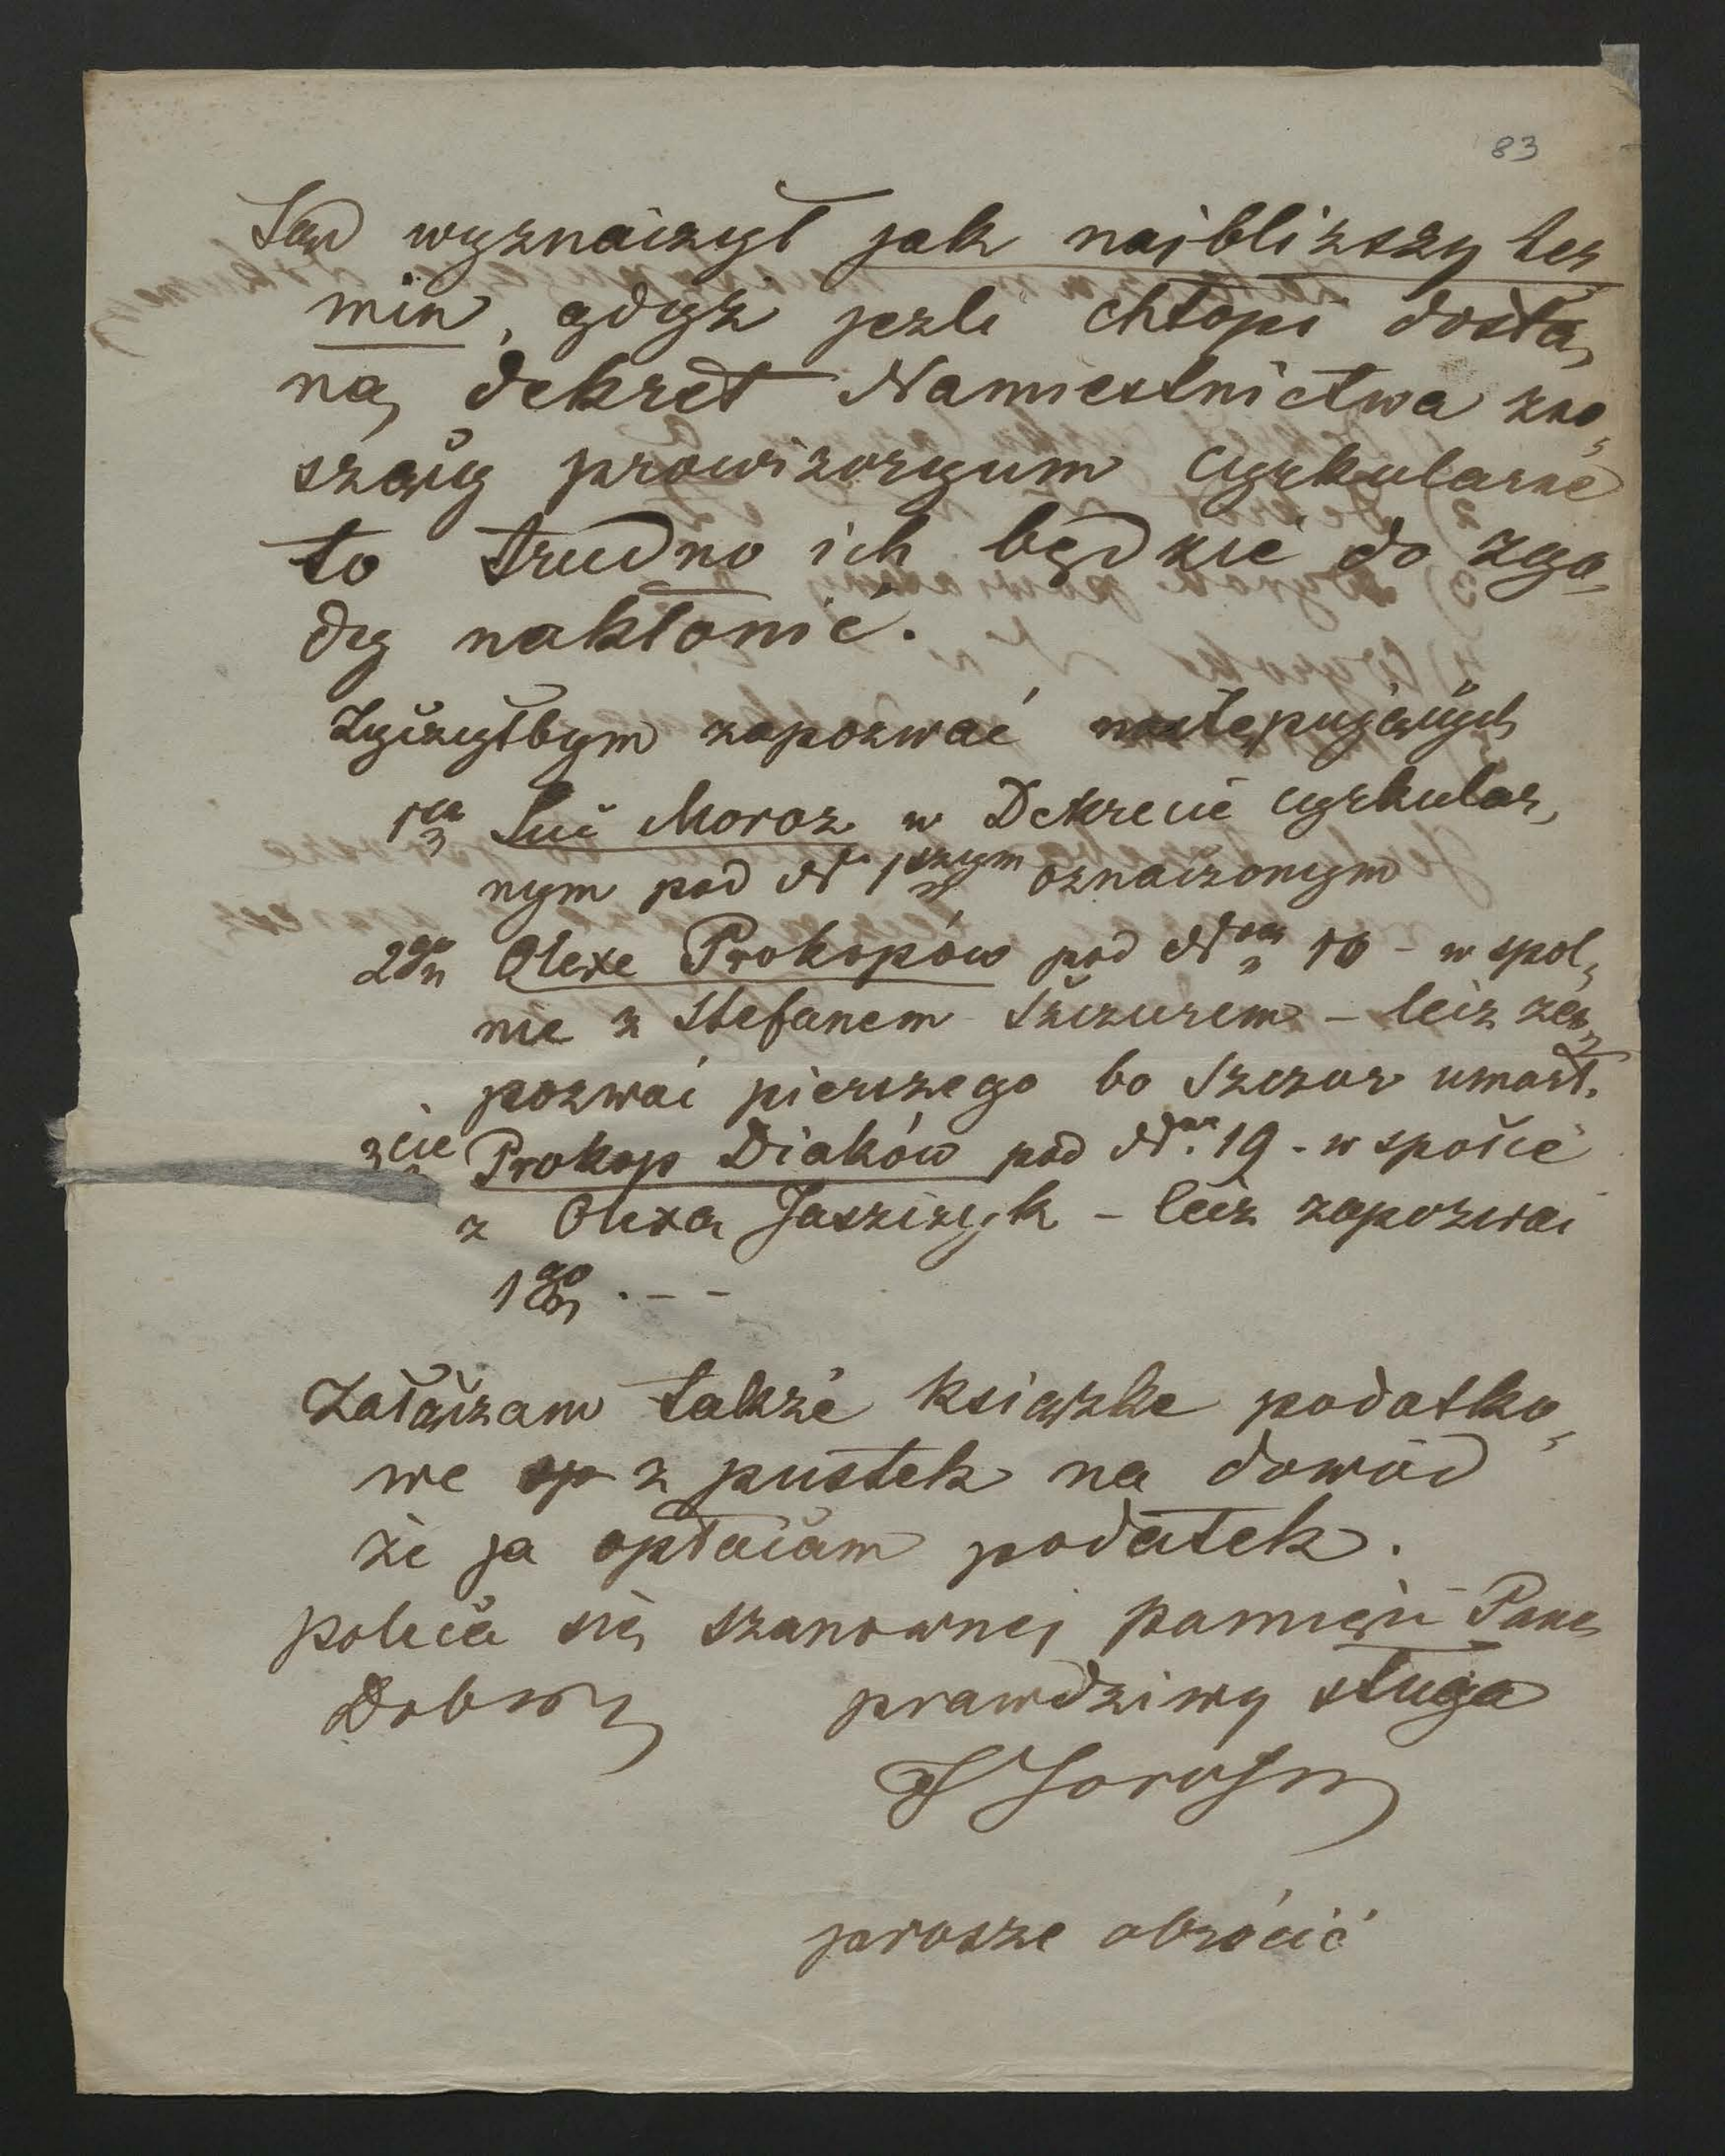 83
Sąd wyznaczył jak najbliższy ter
min, gdyż jezli chłopi dosta,
ną dekret Namiestnictwa zno,
szący prowizoryum cyrkularne
to trudno ich będzie do zgo,
dy nakłonić.
Życzyłbym zapozwać następujących
1o Luć Moroz w Dekrecie cyrkular,
nym pod Nr 1szym oznaczonym
2go Olexe Prokopów pod Nrem 10 - wspol,
nie z Stefanem Szczurem - lecz za,
pozwać pierszego bo Szczur umarł.
3cie Prokop Diaków pod Nr. 19 - wspołie
z Olexa Jaszczyk - lecz zapozwać
1go . - -
Załączam także książke podatko,
we z pustek na dowód
że ja opłacam podatek.
poleca się szanownej pamięci Pana
Dobr prawdziwy sługa
prosze obrócić